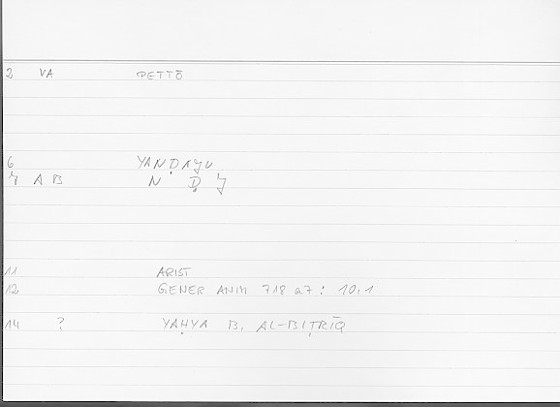 2 VA PETTŌ
6 YANḌAǦU
7 A B N Ḍ Ǧ
11 ARIST
12 GENER ANIM 718 a7 : 10,1
14 ? YAḤYA B. AL-BIṬRĪQ